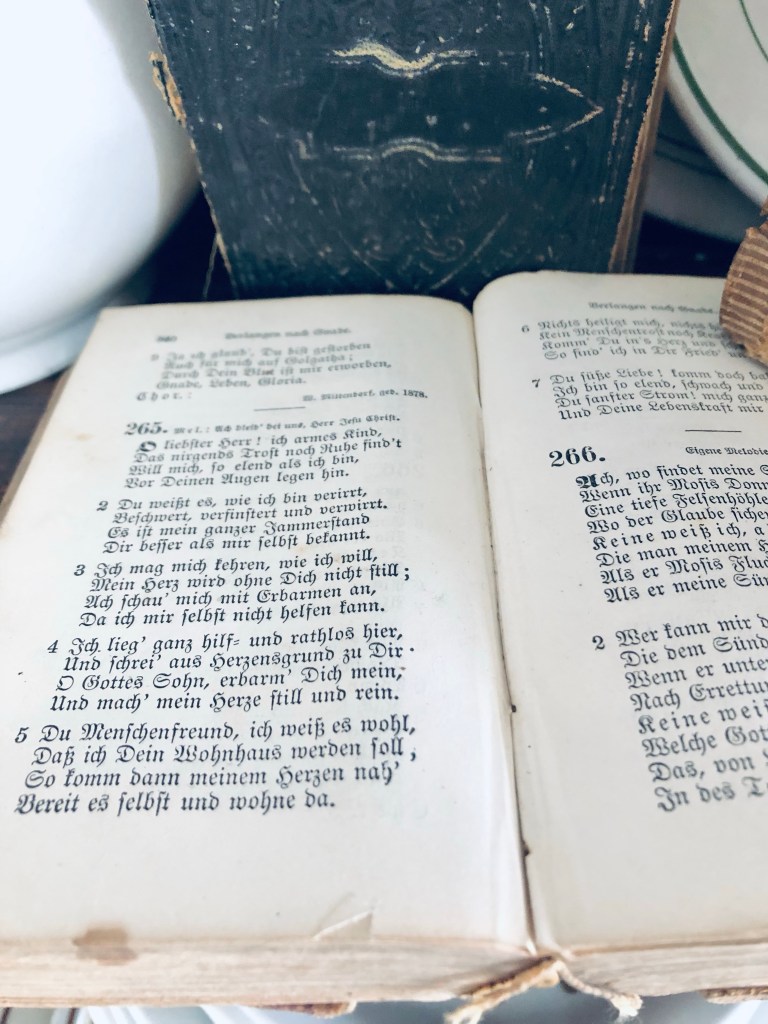 Verlangen nach Gnade.
9 Ja ich glaub', Du bist gestorben
Auch für mich auf Golgatha;
Durch Dein Blut ist mir erworben,
Gnade, Leben, Gloria.
Chor.: geb. 1878.
265. Mel.: Ach bleib' bei uns, Herr Jesu Christ.
O liebster Herr! ich armes Kind,
Das nirgends Trost noch Ruhe find't
Will mich, so elend als ich bin,
Vor Deinen Augen legen hin.
2 Du weißt es, wie ich bin verirrt,
Beschwert, verfinstert und verwirrt.
Es ist mein ganzer Jammerstand
Dir besser als mir selbst bekannt.
3 Ich mag mich kehren, wie ich will,
Mein Herz wird ohne Dich nicht still;
Ach schau' mich mit Erbarmen an,
Da ich mir selbst nicht helfen kann.
4 Ich lieg' ganz hilf- und rathlos hier,
Und schrei' aus Herzensgrund zu Dir.
O Gottes Sohn, erbarm' Dich mein,
Und mach' mein Herze still und rein.
5 Du Menschenfreund, ich weiß es wohl,
Daß ich Dein Wohnhaus werden soll;
So komm dann meinem Herzen nah'
Bereit es selbst und wohne da.
Verlangen nach Gnade.
6 Nichts heiligt mich, nichts
Kein Menschentrost noch
Komm' Du in's Herz und
So find' ich in Dir Fried'
7 Du süße Liebe! komm doch
Ich bin so elend, schwach und
Du sanfter Strom! mich
Und Deine Lebenskraft mir
266. Eigene Melodie
Ach, wo findet meine
Wenn ihr Mosis
Eine tiefe Felsenhöhle
Wo der Glaube
Keine weiß ich,
Die man meinem
Als er Mosis
Als er meine
2 Wer kann mir
Die dem
Wenn er
Nach
Keine
Welche
Das, von
In des